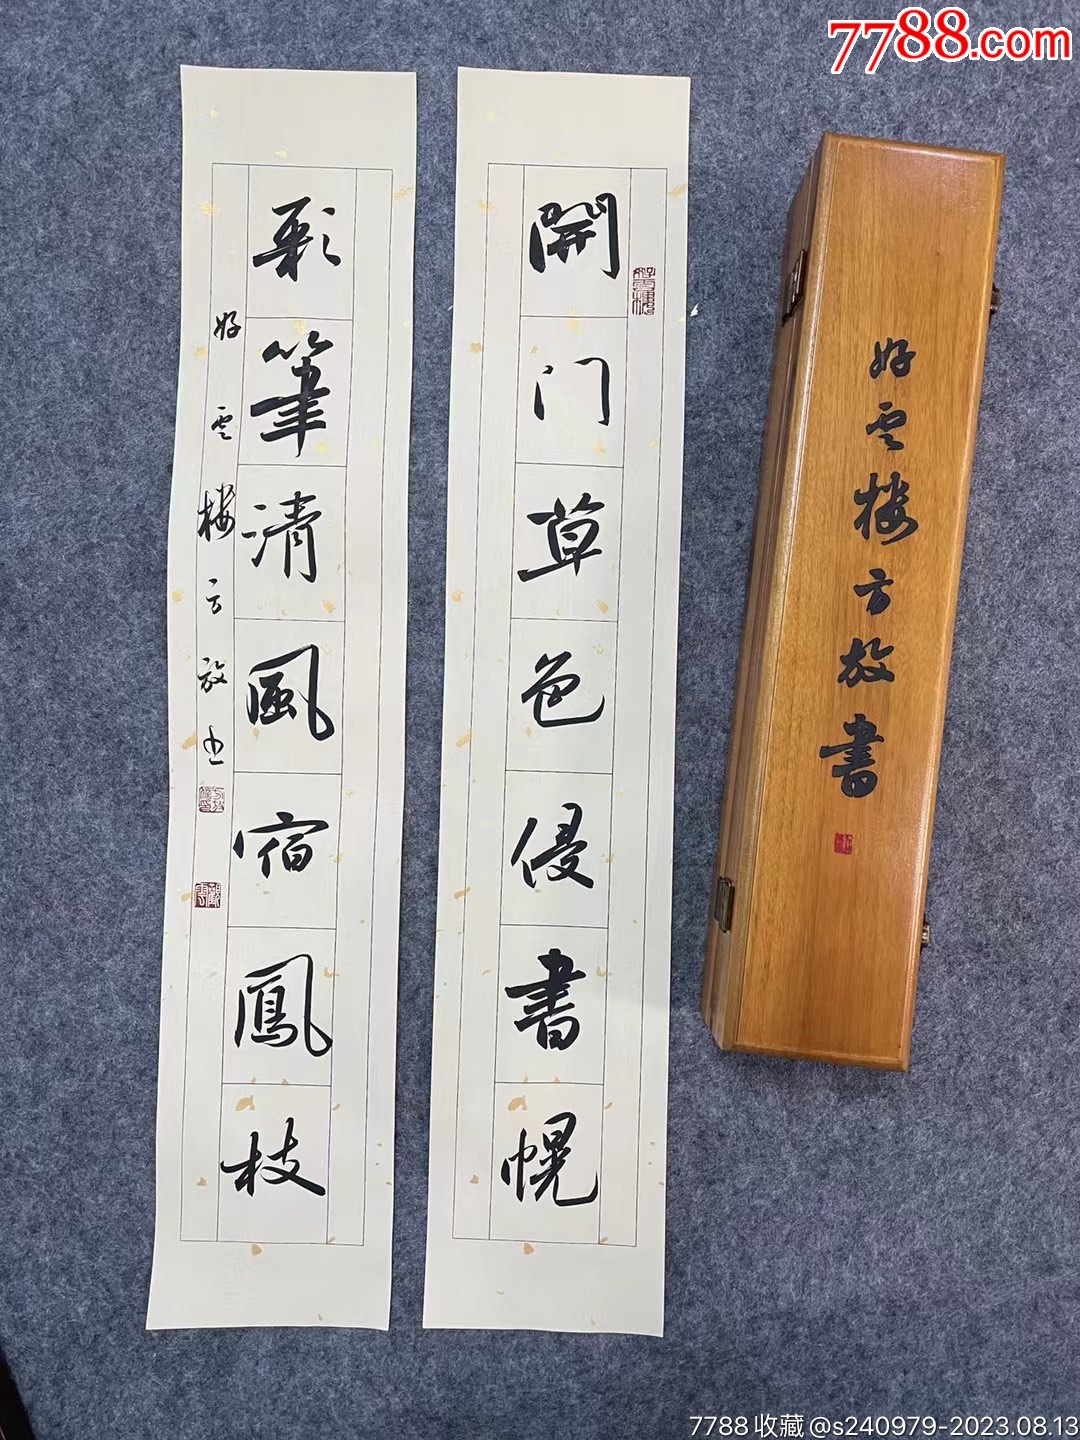 7788.com
開门草色侵書幌
好雲樓
彩筆清風宿鳳枝
好雲楼方放书
好雲楼方放書
7788收藏@s240979-2023.08.13